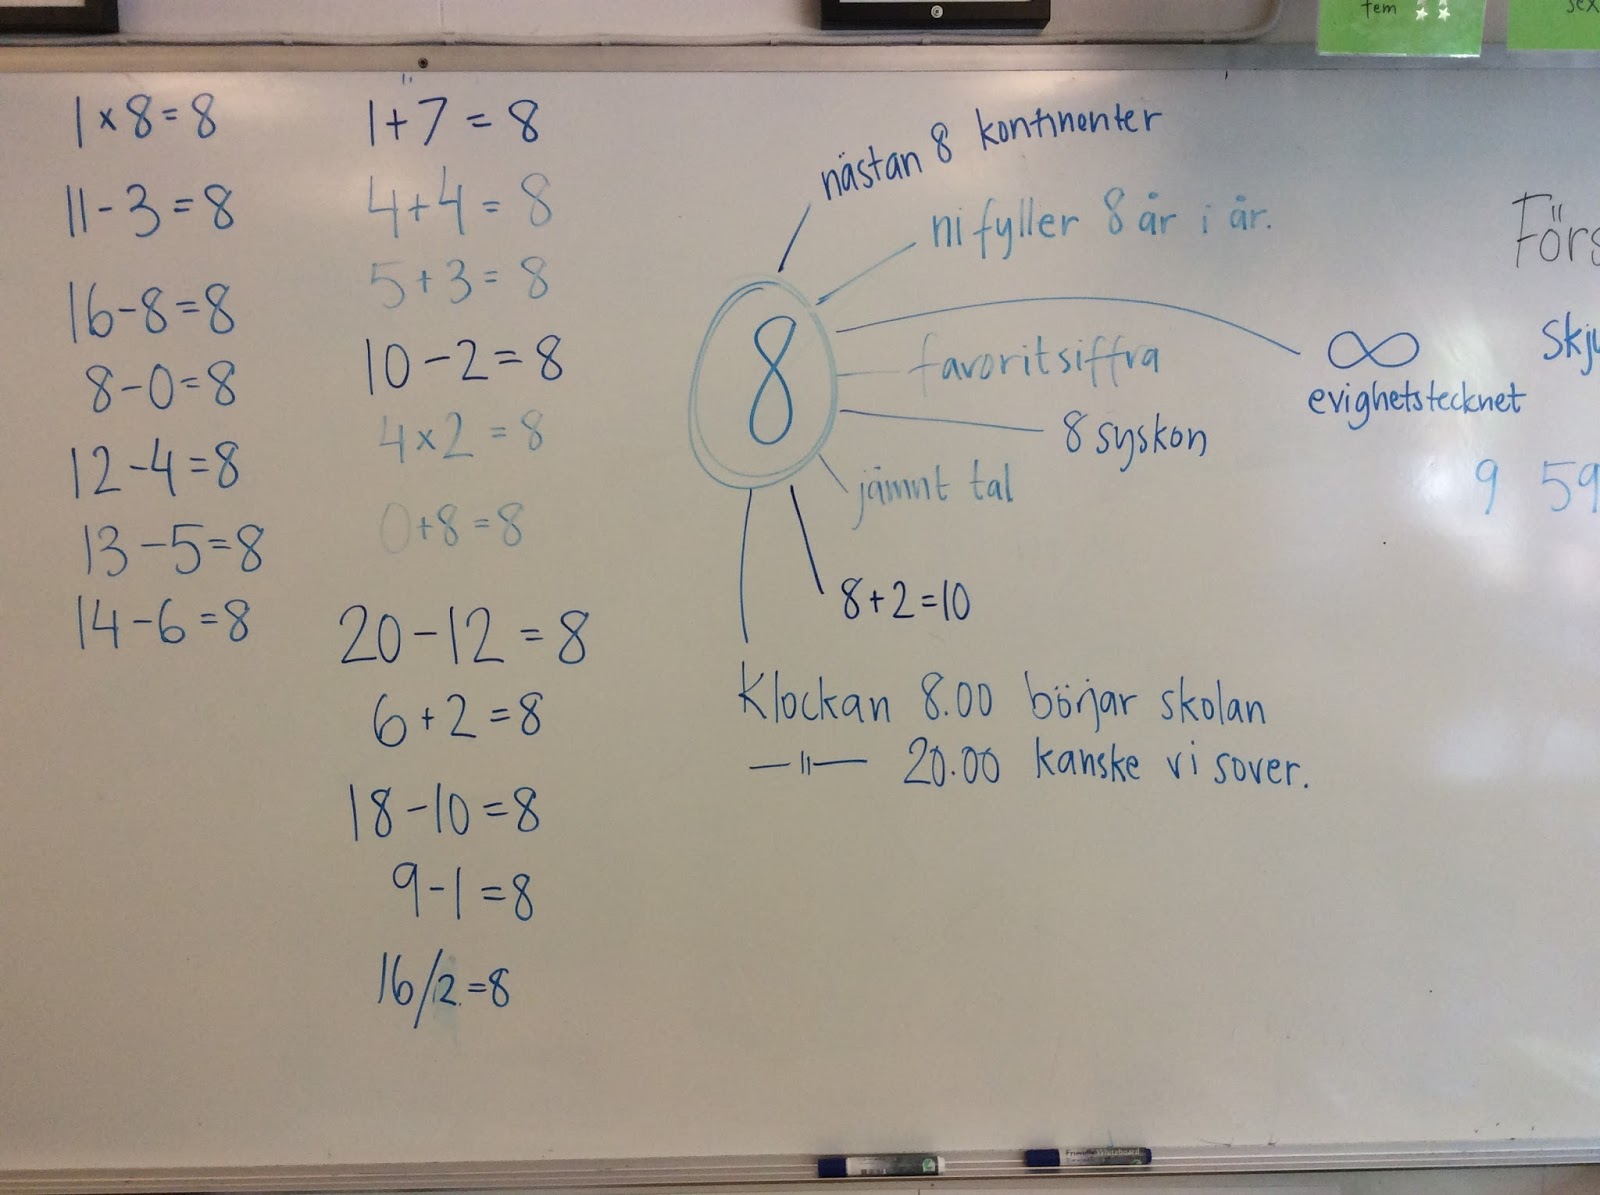 fem
1 × 8 = 8
11 - 3 = 8
16 - 8 = 8
8 - 0 = 8
12 - 4 = 8
13 - 5 = 8
14 - 6 = 8
1 + 7 = 8
4 + 4 = 8
5 + 3 = 8
10 - 2 = 8
4 × 2 = 8
0 + 8 = 8
20 - 12 = 8
6 + 2 = 8
18 - 10 = 8
9 - 1 = 8
16/2 = 8
nästan 8 kontinenter
ni fyller 8 år i år.
8
∞
evighetstecknet
favoritsiffra
8 syskon
jämnt tal
8 + 2 = 10
Klockan 8.00 börjar skolan
—"— 20.00 kanske vi sover.
Förs
Skju
9 59